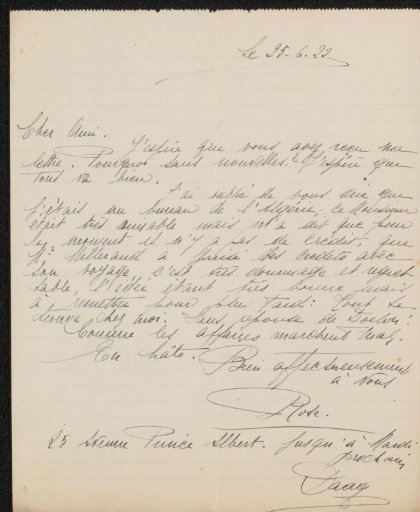 Le 25-6-22
Cher Ami.
J'espère que vous avez reçu ma
lettre. Pourquoi sans nouvelles? J'espère que
tout va bien.
J'ai oublié de vous dire que
j'étais au bureau de l'Algérie, le Monsieur
était très aimable mais m'a dit que pour
le moment il n'y a pas de crédits, que
Mr Millerand a épuisé les crédits avec
son voyage, c'est très dommage et regret
table, l'idée étant très bonne mais
à remettre pour plus tard. Tout se
trouve chez moi. Sans réponse de
Comme les affaires marchent mal.
En hâte. Bien affectueusement
à vous
Rose.
25 Avenue Prince Albert. jusqu'à Mardi
prochain